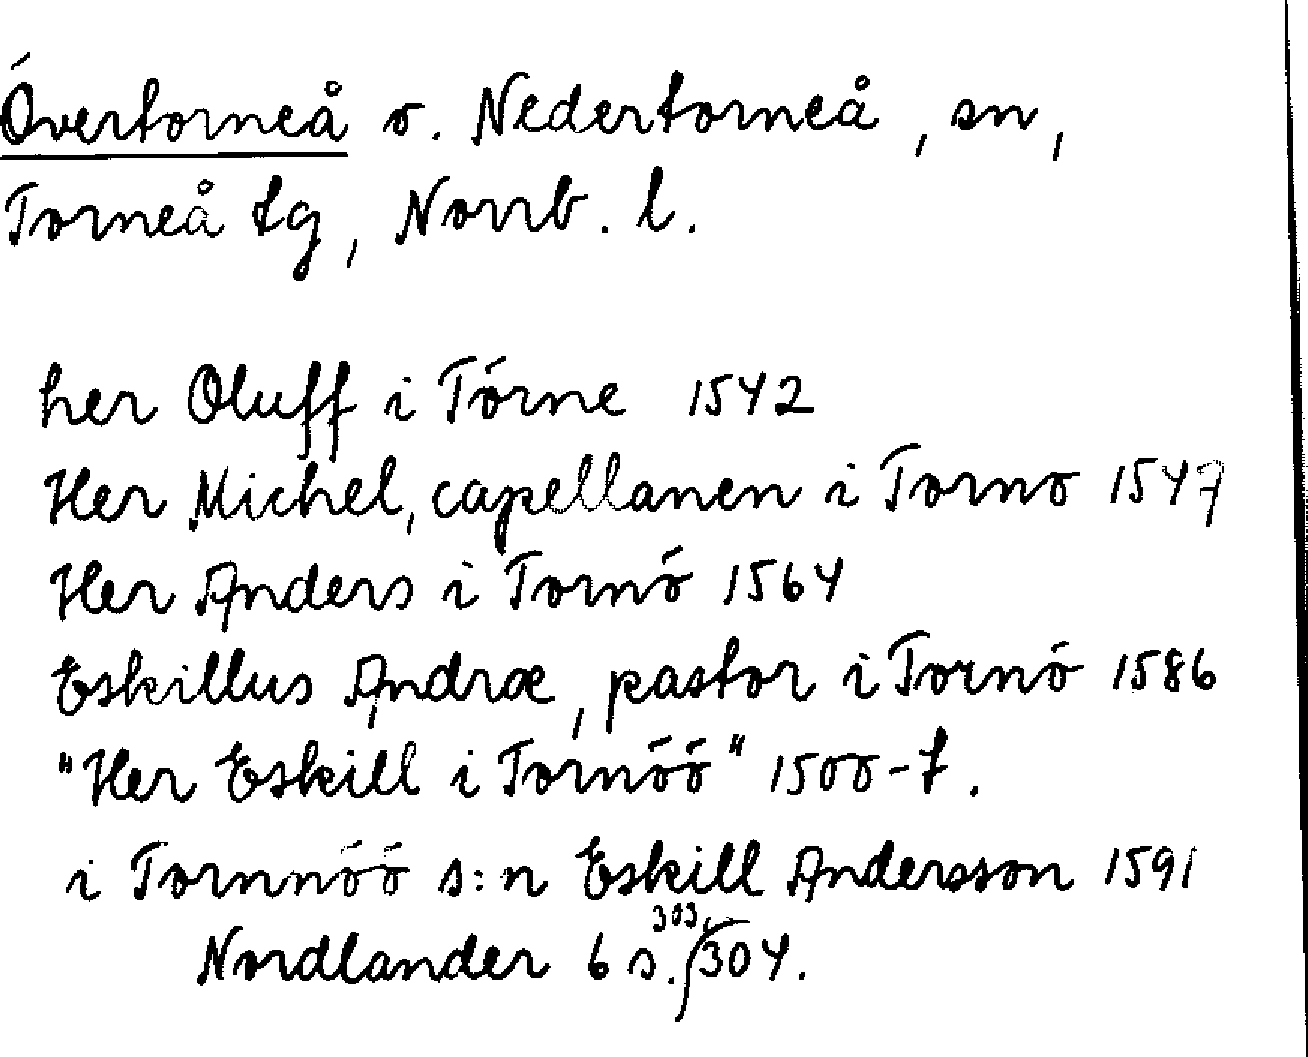 Övertorneå o. Nedertorneå, sn,
Torneå tg, Norrb. l.
her Oluff i Törne 1542
Her Michel, capellanen i Torno 1547
Her Anders i Tornö 1564
Eskillus Andræ, pastor i Tornö 1586
"Her Eskill i Tornöö" 1500-t.
i Tornnöö s:n Eskill Andersson 1591
Nordlander 6 s. 303, 304.